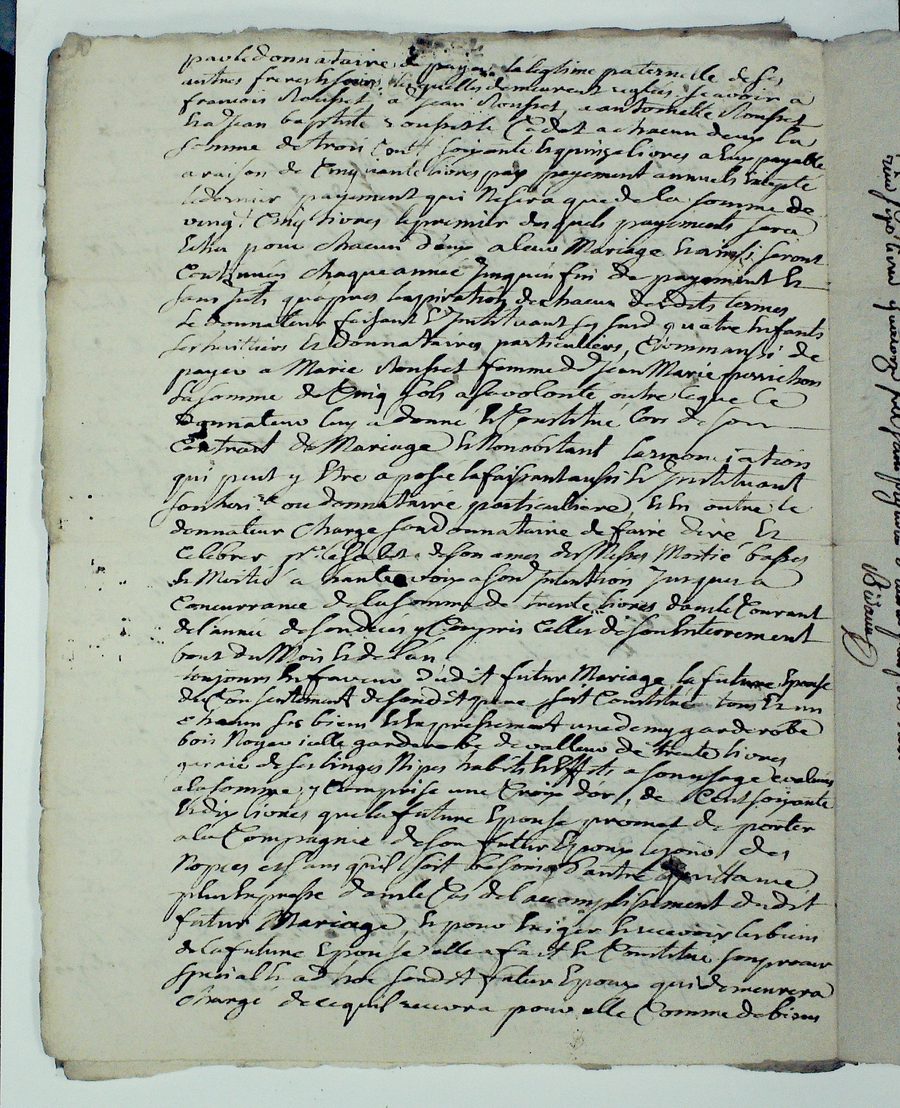 par le donnataire, de payer la legitime paternelle de ses
autres freres et soeurs, lesquelles demeurent reglées scavoir a
francois Rousset, a jean Rousset, a antoinette Rousset
et a Jean baptiste Rousset le Cadet a chacun deux la
somme de trois Cent soixante et quinze livres a Eux payable
a raison de Cinquante livres par payement annuels Excepté
le dernier payement qui ne sera que de la somme de
vingt Cinq livres le premier desquels payements sera
Echu pour chacun deux a leur Mariage et ainsi seront
Continués chaque année jusques a fin de payement et
sans jnts qu'apres lexpiration de chacun desdits termes
Le donnateur faisant Et Jnstituant ses surd quatre Enfants
ses heritiers et donnataires particulliers, Comm'aussi de
payer a Marie Rousset femme de Jean Marie perrichon
La somme de Cinq sols a sa volonté outre ce que le
Donnateur luy a donné Et Constitué lors de son
Contrat de Mariage Et Nonobstant la renonciations
qui peut y Etre aposée la faisant aussi Et Jnstituant
son heri.re ou donnataire particulliere, Et En outre le
donnateur Charge son donnataire de faire dire Et
Celebrer pr. le salut de son ame des Messes Moitié basses
Et Moitié a haute voix a son Jntention jusques a
Concurrance de la somme de trente livres dans le Courant
de l'année de son deces y Compris Celles de son Enterrement
bout du Mois et de l'an,
toujours En faveur dudit futur Mariage la future Epouse
du Consentement de sondit pere sest Constitué tous Et un
chacun ses biens et Expressement une demy garderobe
bois Noyer icelle garderobe de valleur de trente livres
garnie de ses linges Nipes habits et Effets a son usage evalués
a la somme, y Comprise une Croix d'or, de Cent soixante
Et dix livres que la future Epouse promet de porter
a la Compagnie de son futur Epoux le jour des
Nopces et sans qu'il soit besoing d'autre quittance
plus Expresse dans le Cas de laccomplissement dudit
futur Mariage Et pour Exiger Et recevoir les biens
de la future Epouse elle a fait Et Constitué son procur
special Et a sondit futur Epoux qui demeurera
Chargé de ce quil recevra pour elle Comme de biens
Bivoux